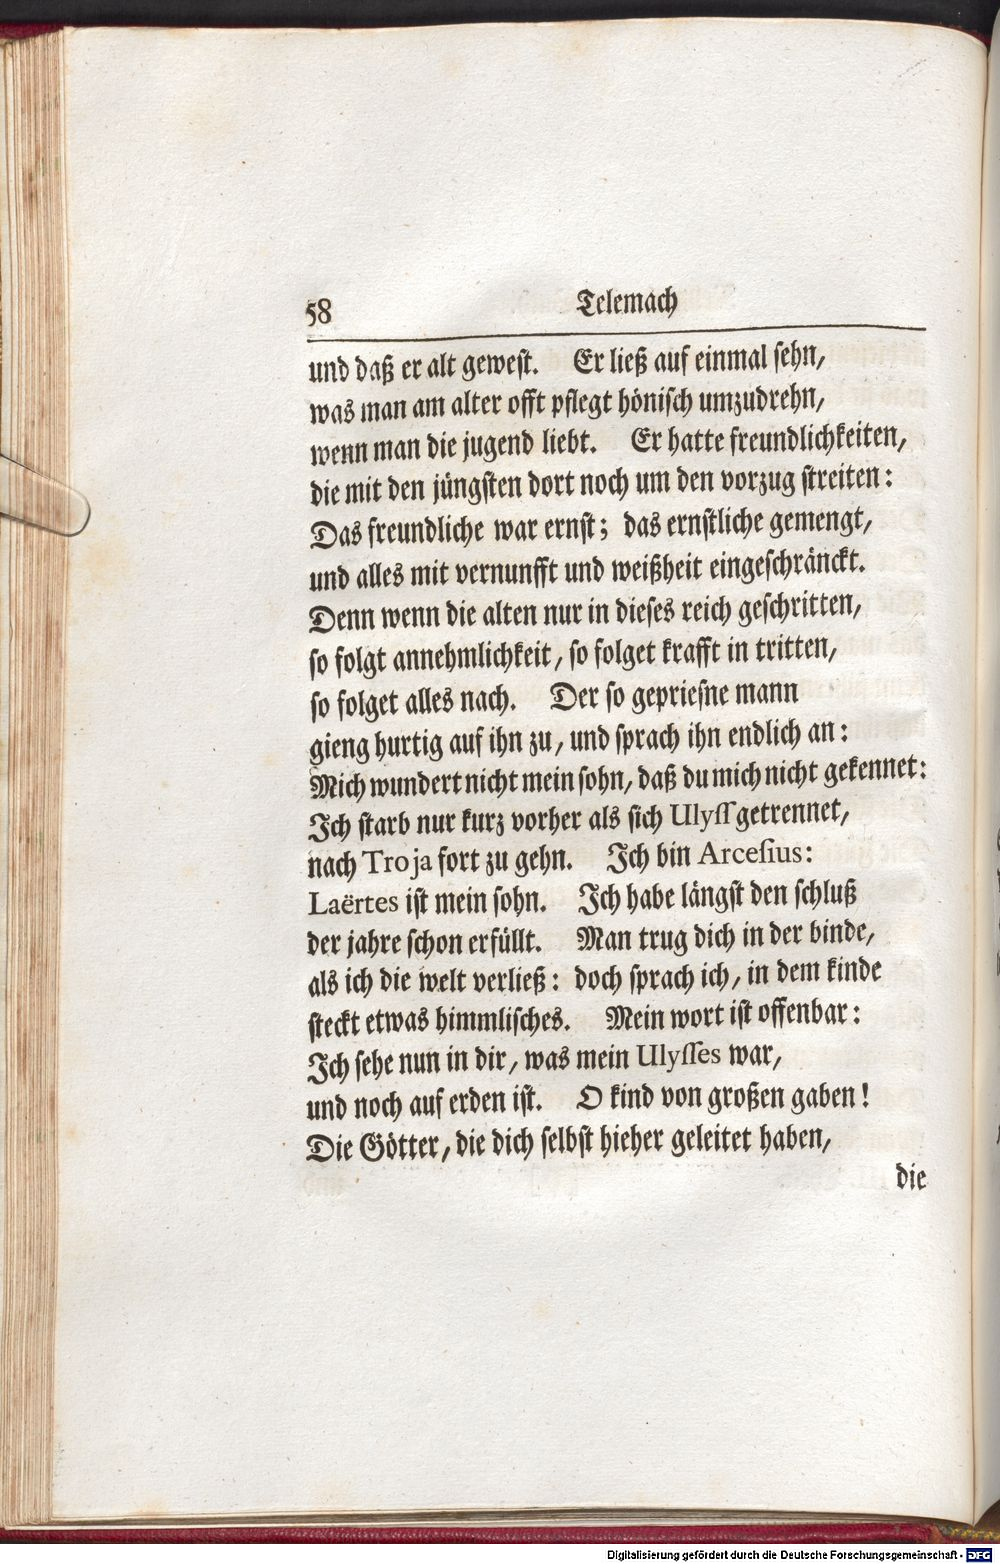 58 Telemach
und daß er alt gewest. Er ließ auf einmal sehn,
was man am alter offt pflegt hönisch umzudrehn,
wenn man die jugend liebt. Er hatte freundlichkeiten,
die mit den jüngsten dort noch um den vorzug streiten:
Das freundliche war ernst; das ernstliche gemengt,
und alles mit vernunfft und weißheit eingeschränckt.
Denn wenn die alten nur in dieses reich geschritten,
so folgt annehmlichkeit, so folget krafft in tritten,
so folget alles nach. Der so gepriesne mann
gieng hurtig auf ihn zu, und sprach ihn endlich an:
Mich wundert nicht mein sohn, daß du mich nicht gekennet:
Ich starb nur kurz vorher als sich Ulyss getrennet,
nach Troja fort zu gehn. Ich bin Arcesius:
Laërtes ist mein sohn. Ich habe längst den schluß
der jahre schon erfüllt. Man trug dich in der binde,
als ich die welt verließ: doch sprach ich, in dem kinde
steckt etwas himmlisches. Mein wort ist offenbar:
Ich sehe nun in dir, was mein Ulysses war,
und noch auf erden ist. O kind von großen gaben!
Die Götter, die dich selbst hieher geleitet haben,
die
Digitalisierung gefördert durch die Deutsche Forschungsgemeinschaft - DFG